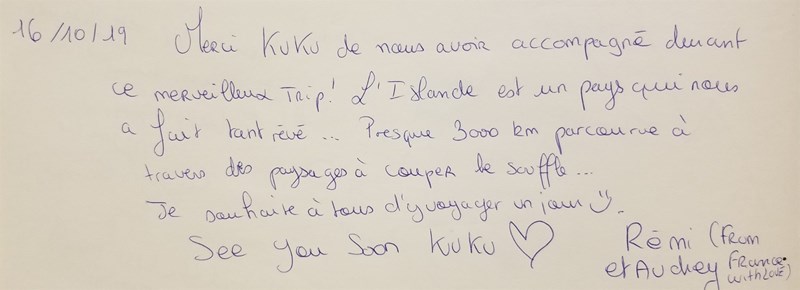 16/10/19 Merci KUKU de nous avoir accompagné durant
ce merveilleux Trip! L'Islande est un pays qui nous
a fait tant rêvé... Presque 3000 km parcourue à
travers des paysages à couper le souffle...
Je souhaite à tous d'y voyager un jour
See you Soon KUKU
Rémi (From
et Audrey France
with LOVE)